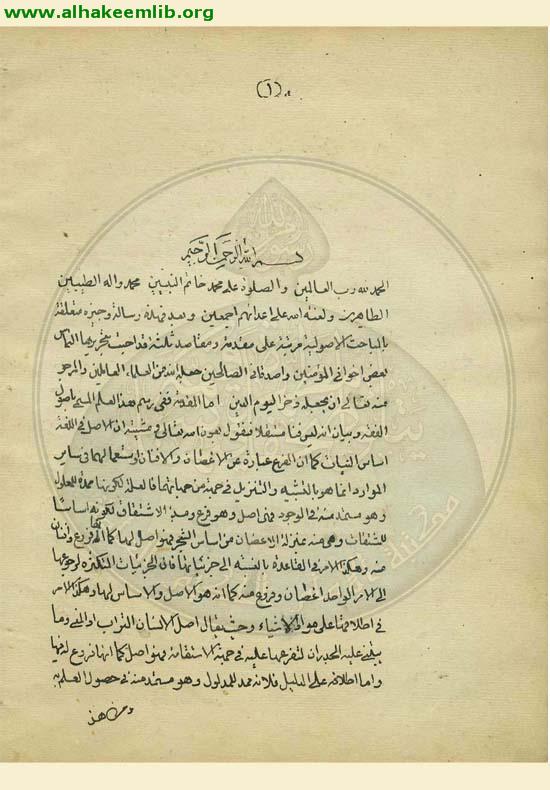 www.alhakeemlib.org
(١)
بسم الله الرحمن الرحيم
الحمد لله رب العالمين والصلوة على محمد خاتم النبيين محمد واله الطيبين
الطاهرين ولعنة الله على اعدائهم اجمعين وبعد فهذه رسالة وجيزة متعلقة
بالمباحث الاصولية مرتبة على مقدمة ومقاصد ثلثة قد اجبت بتحريرها التماس
بعض اخواني المؤمنين واصدقائي الصالحين جعله الله من العلماء العاملين والمرجو
منه تعالى ان يجعله ذخرا ليوم الدين اما المقدمة ففي رسم هذا العلم المسمى باصول
الفقه وبيان انه ليس فنا مستقلا فنقول بعون الله تعالى ومشيته ان الاصل في اللغة
اساس النبات كما ان الفرع عبارة عن الاغصان والافنان واستعمالهما في ساير
الموارد انما هو بالتشبيه والتنزيل في جهة من جهاتهما فالعلة لكونها ممدة للمعلول
وهو مستمد منه في الوجود فهي اصل وهو فرع ومبدء الاشتقاق لكونه اساسا
للمشتقات وهي منه بمنزلة الاغصان من اساس الشجر فهو اصل لها كما انها فروع وافنان
منه وهكذا الامر في القاعدة بالنسبة الى جزئياتها فان الجزئيات المتكثرة لرجوعها
الى الامر الواحد اغصان وفروع منه كما انه هو الاصل والاساس لها وهكذا الامر
في اطلاقها على مواد الاشياء وحيث يقال اصل الانسان التراب او المني وما
يبتني عليه الجدران لتفرعها عليه في جهة الاستقامة فهو اصل كما انها فروع له فيها
واما اطلاقه على الدليل فلانه ممد للمدلول وهو مستمد منه في حصول العلم به
ومن هذا